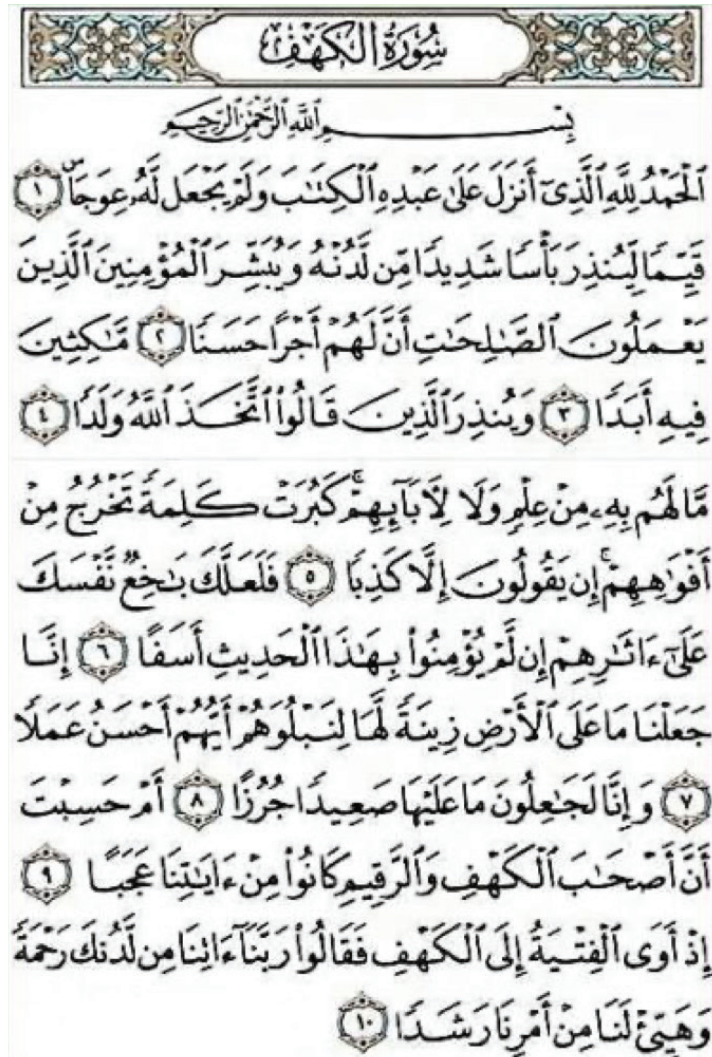 سُورَةُ الكَهۡفِ
بِسۡمِ ٱللَّهِ ٱلرَّحۡمَٰنِ ٱلرَّحِيمِ
ٱلۡحَمۡدُ لِلَّهِ ٱلَّذِيٓ أَنزَلَ عَلَىٰ عَبۡدِهِ ٱلۡكِتَٰبَ وَلَمۡ يَجۡعَل لَّهُۥ عِوَجَاۜ ١
قَيِّمٗا لِّيُنذِرَ بَأۡسٗا شَدِيدٗا مِّن لَّدُنۡهُ وَيُبَشِّرَ ٱلۡمُؤۡمِنِينَ ٱلَّذِينَ
يَعۡمَلُونَ ٱلصَّٰلِحَٰتِ أَنَّ لَهُمۡ أَجۡرًا حَسَنٗا ٢ مَّٰكِثِينَ
فِيهِ أَبَدٗا ٣ وَيُنذِرَ ٱلَّذِينَ قَالُواْ ٱتَّخَذَ ٱللَّهُ وَلَدٗا ٤
مَّا لَهُم بِهِۦ مِنۡ عِلۡمٖ وَلَا لِأٓبَآئِهِمۡۚ كَبُرَتۡ كَلِمَةٗ تَخۡرُجُ مِنۡ
أَفۡوَٰهِهِمۡۚ إِن يَقُولُونَ إِلَّا كَذِبٗا ٥ فَلَعَلَّكَ بَٰخِعٞ نَّفۡسَكَ
عَلَىٰٓ ءَاثَٰرِهِمۡ إِن لَّمۡ يُؤۡمِنُواْ بِهَٰذَا ٱلۡحَدِيثِ أَسَفًا ٦ إِنَّا
جَعَلۡنَا مَا عَلَى ٱلۡأَرۡضِ زِينَةٗ لَّهَا لِنَبۡلُوَهُمۡ أَيُّهُمۡ أَحۡسَنُ عَمَلٗا
٧ وَإِنَّا لَجَٰعِلُونَ مَا عَلَيۡهَا صَعِيدٗا جُرُزًا ٨ أَمۡ حَسِبۡتَ
أَنَّ أَصۡحَٰبَ ٱلۡكَهۡفِ وَٱلرَّقِيمِ كَانُواْ مِنۡ ءَايَٰتِنَا عَجَبًا ٩
إِذۡ أَوَى ٱلۡفِتۡيَةُ إِلَى ٱلۡكَهۡفِ فَقَالُواْ رَبَّنَآ ءَاتِنَا مِن لَّدُنكَ رَحۡمَةٗ
وَهَيِّئۡ لَنَا مِنۡ أَمۡرِنَا رَشَدٗا ١٠